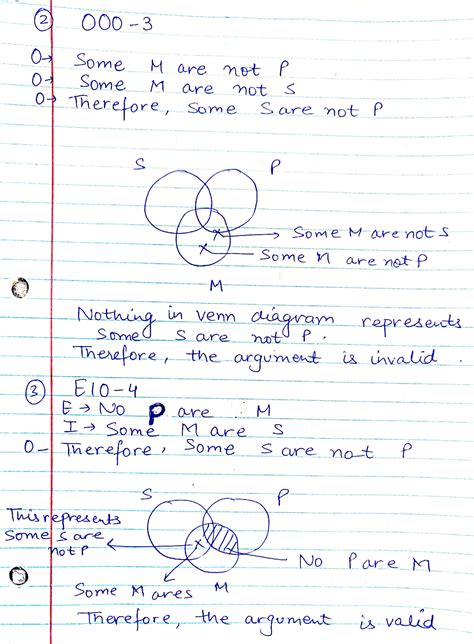 ② OOO-3
O→ Some M are not P
O→ Some M are not S
O→ Therefore, Some S are not P
S P
x → Some M are not S
x Some M are not P
M
Nothing in venn diagram represents
Some S are not P.
Therefore, the argument is invalid.
③ EIO-4
E → No P are M
I → Some M are S
O- Therefore, Some S are not P
S P
This represents
Some S are
not P
x
No P are M
Some M are S M
Therefore, the argument is valid